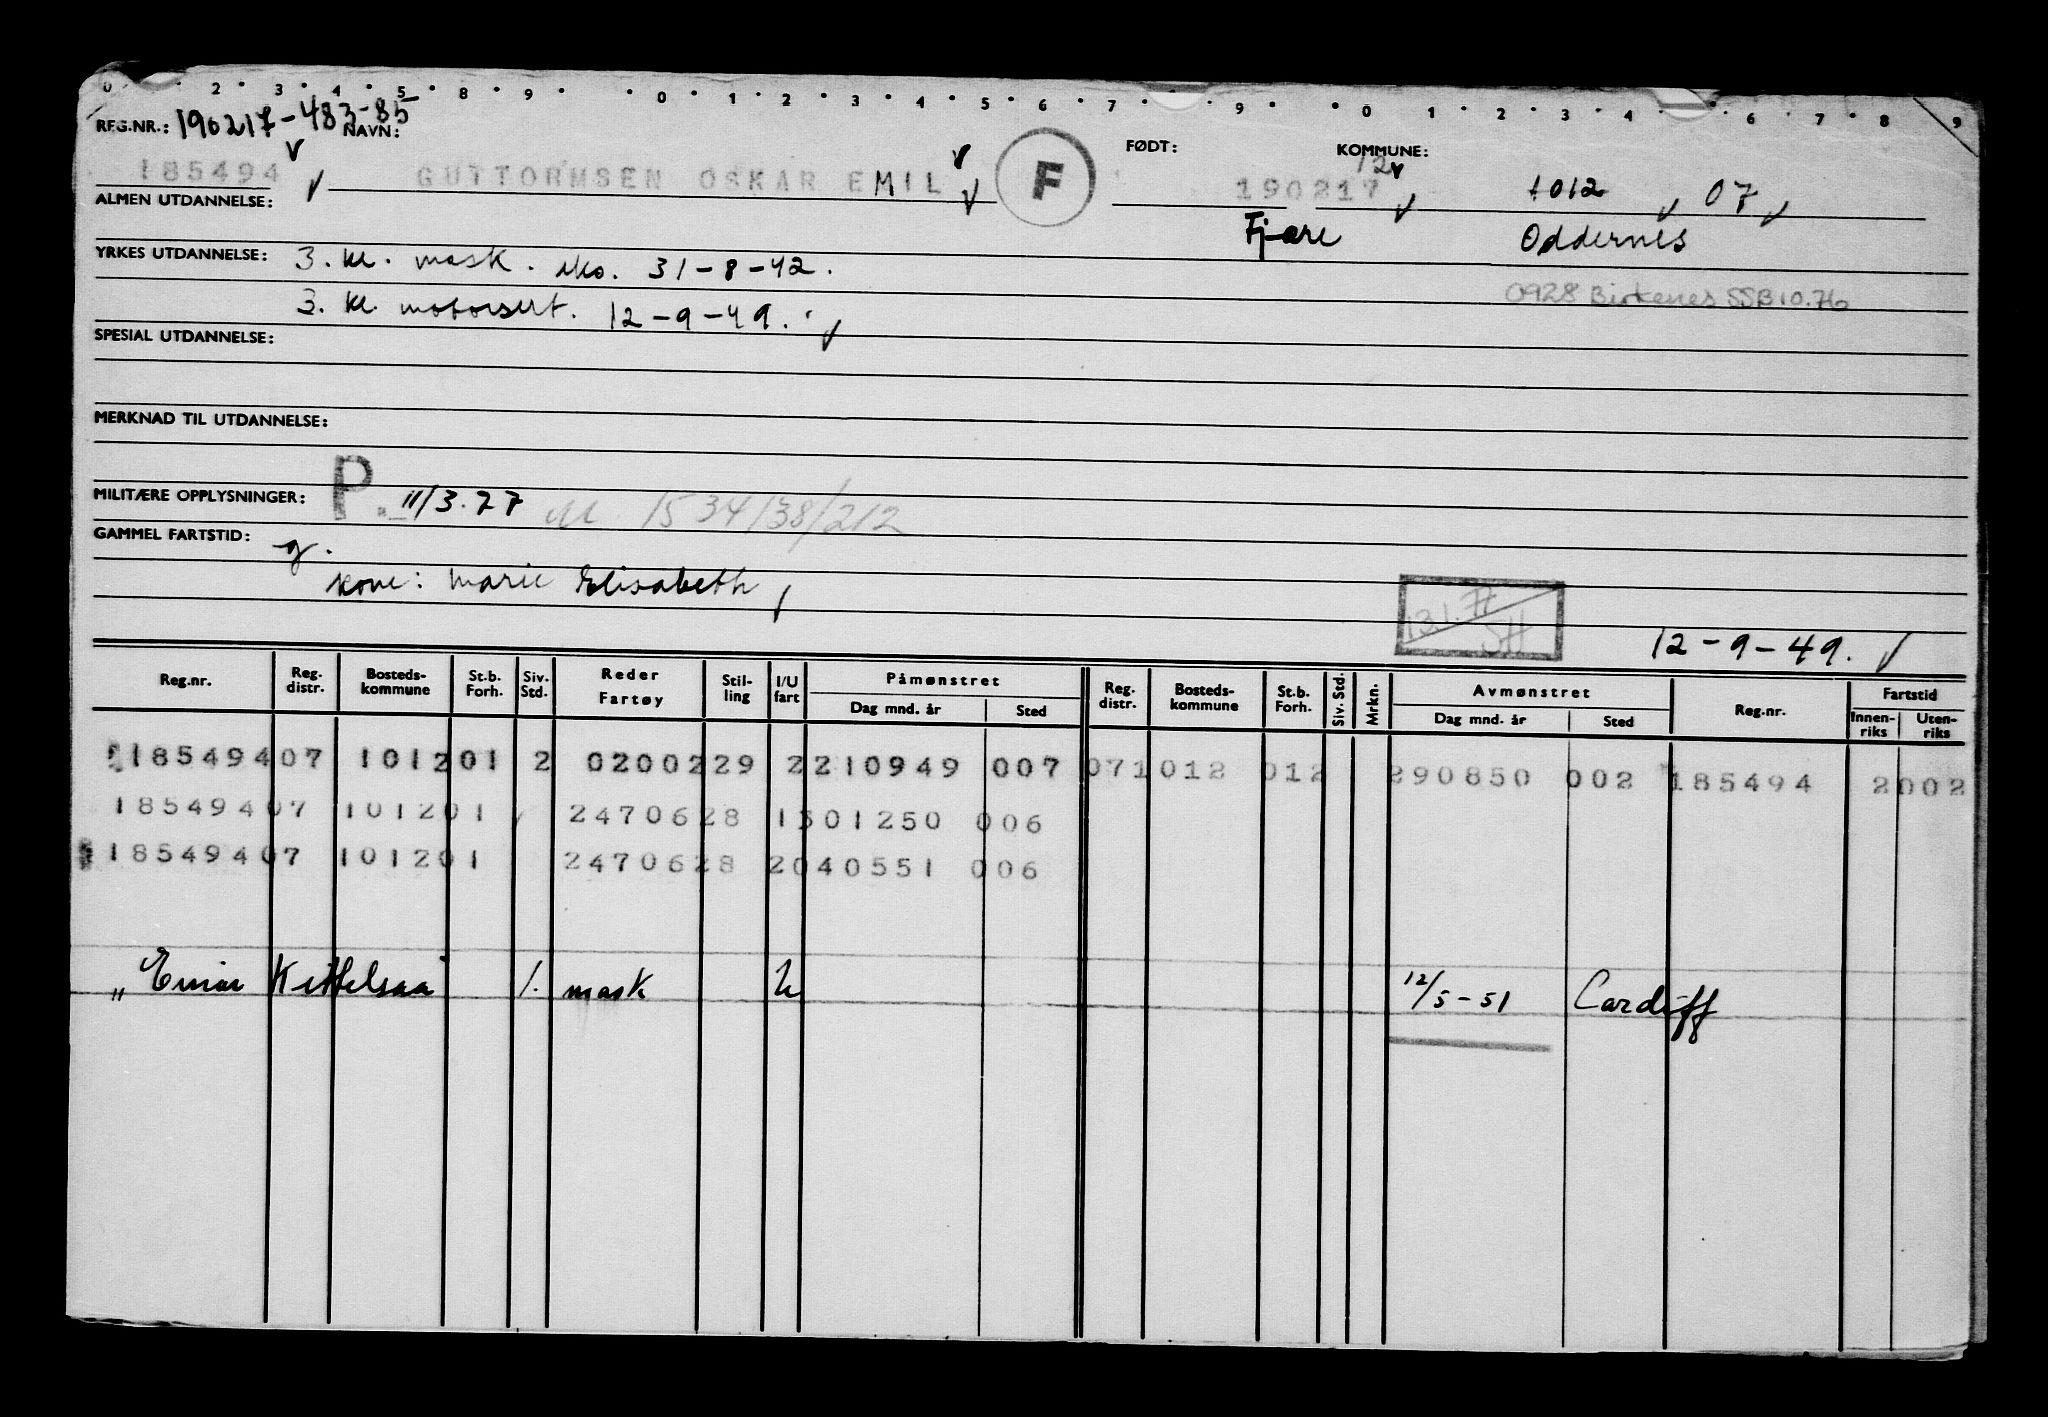 0 2 3 4 5 8 9 0 1 2 3 4 5 6 7 9 0 1 2 3 4 6 7 8 9
REG.NR.: 190217-483-85 NAVN: FØDT: KOMMUNE:
12
185494 GUTTORMSEN OSKAR EMIL F 190217 1012 07
ALMEN UTDANNELSE: Fjære Oddernes
YRKES UTDANNELSE: 3. kl. mask. sko. 31-8-42.
0928 Birkenes SSB 10.76
3. kl. motorsert. 12-9-49.
SPESIAL UTDANNELSE:
MERKNAD TIL UTDANNELSE:
MILITÆRE OPPLYSNINGER: P. 11/3.77 M. 1534/38/212
GAMMEL FARTSTID: g.
kone: Marie Elisabeth
13.1.77 SH
12-9-49.
Reg.nr. Reg. distr. Bosteds-kommune St.b. Forh. Siv. Std. Reder Fartøy Stil-ling I/U fart Påmønstret Dag mnd. år Sted Reg. distr. Bosteds-kommune St.b. Forh. Siv. Std. Mrkn. Avmønstret Dag mnd. år Sted Reg.nr. Fartstid Innen-riks Uten-riks
185494 07 1012 01 2 02002 29 2 210949 007 07 1012 012 290850 002 185494 2002
185494 07 1012 01 24706 28 1 301250 006
185494 07 1012 01 24706 28 2 040551 006
" Einar Kittelsaa 1. mask U 12/5-51 Cardiff